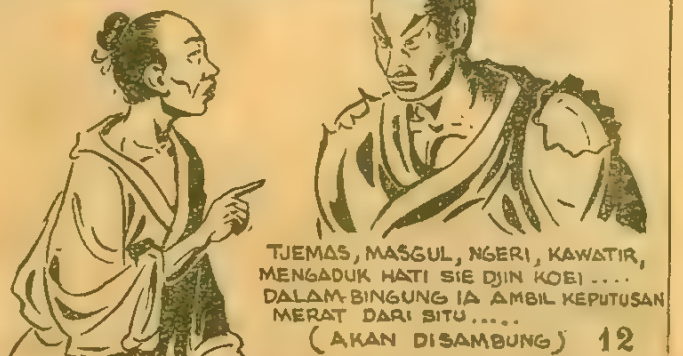 TJEMAS, MASGUL, NGERI, KAWATIR,
MENGADUK HATI SIE DJIN KOEI ....
DALAM BINGUNG IA AMBIL KEPUTUSAN
MERAT DARI SITU .....
(AKAN DISAMBUNG) 12